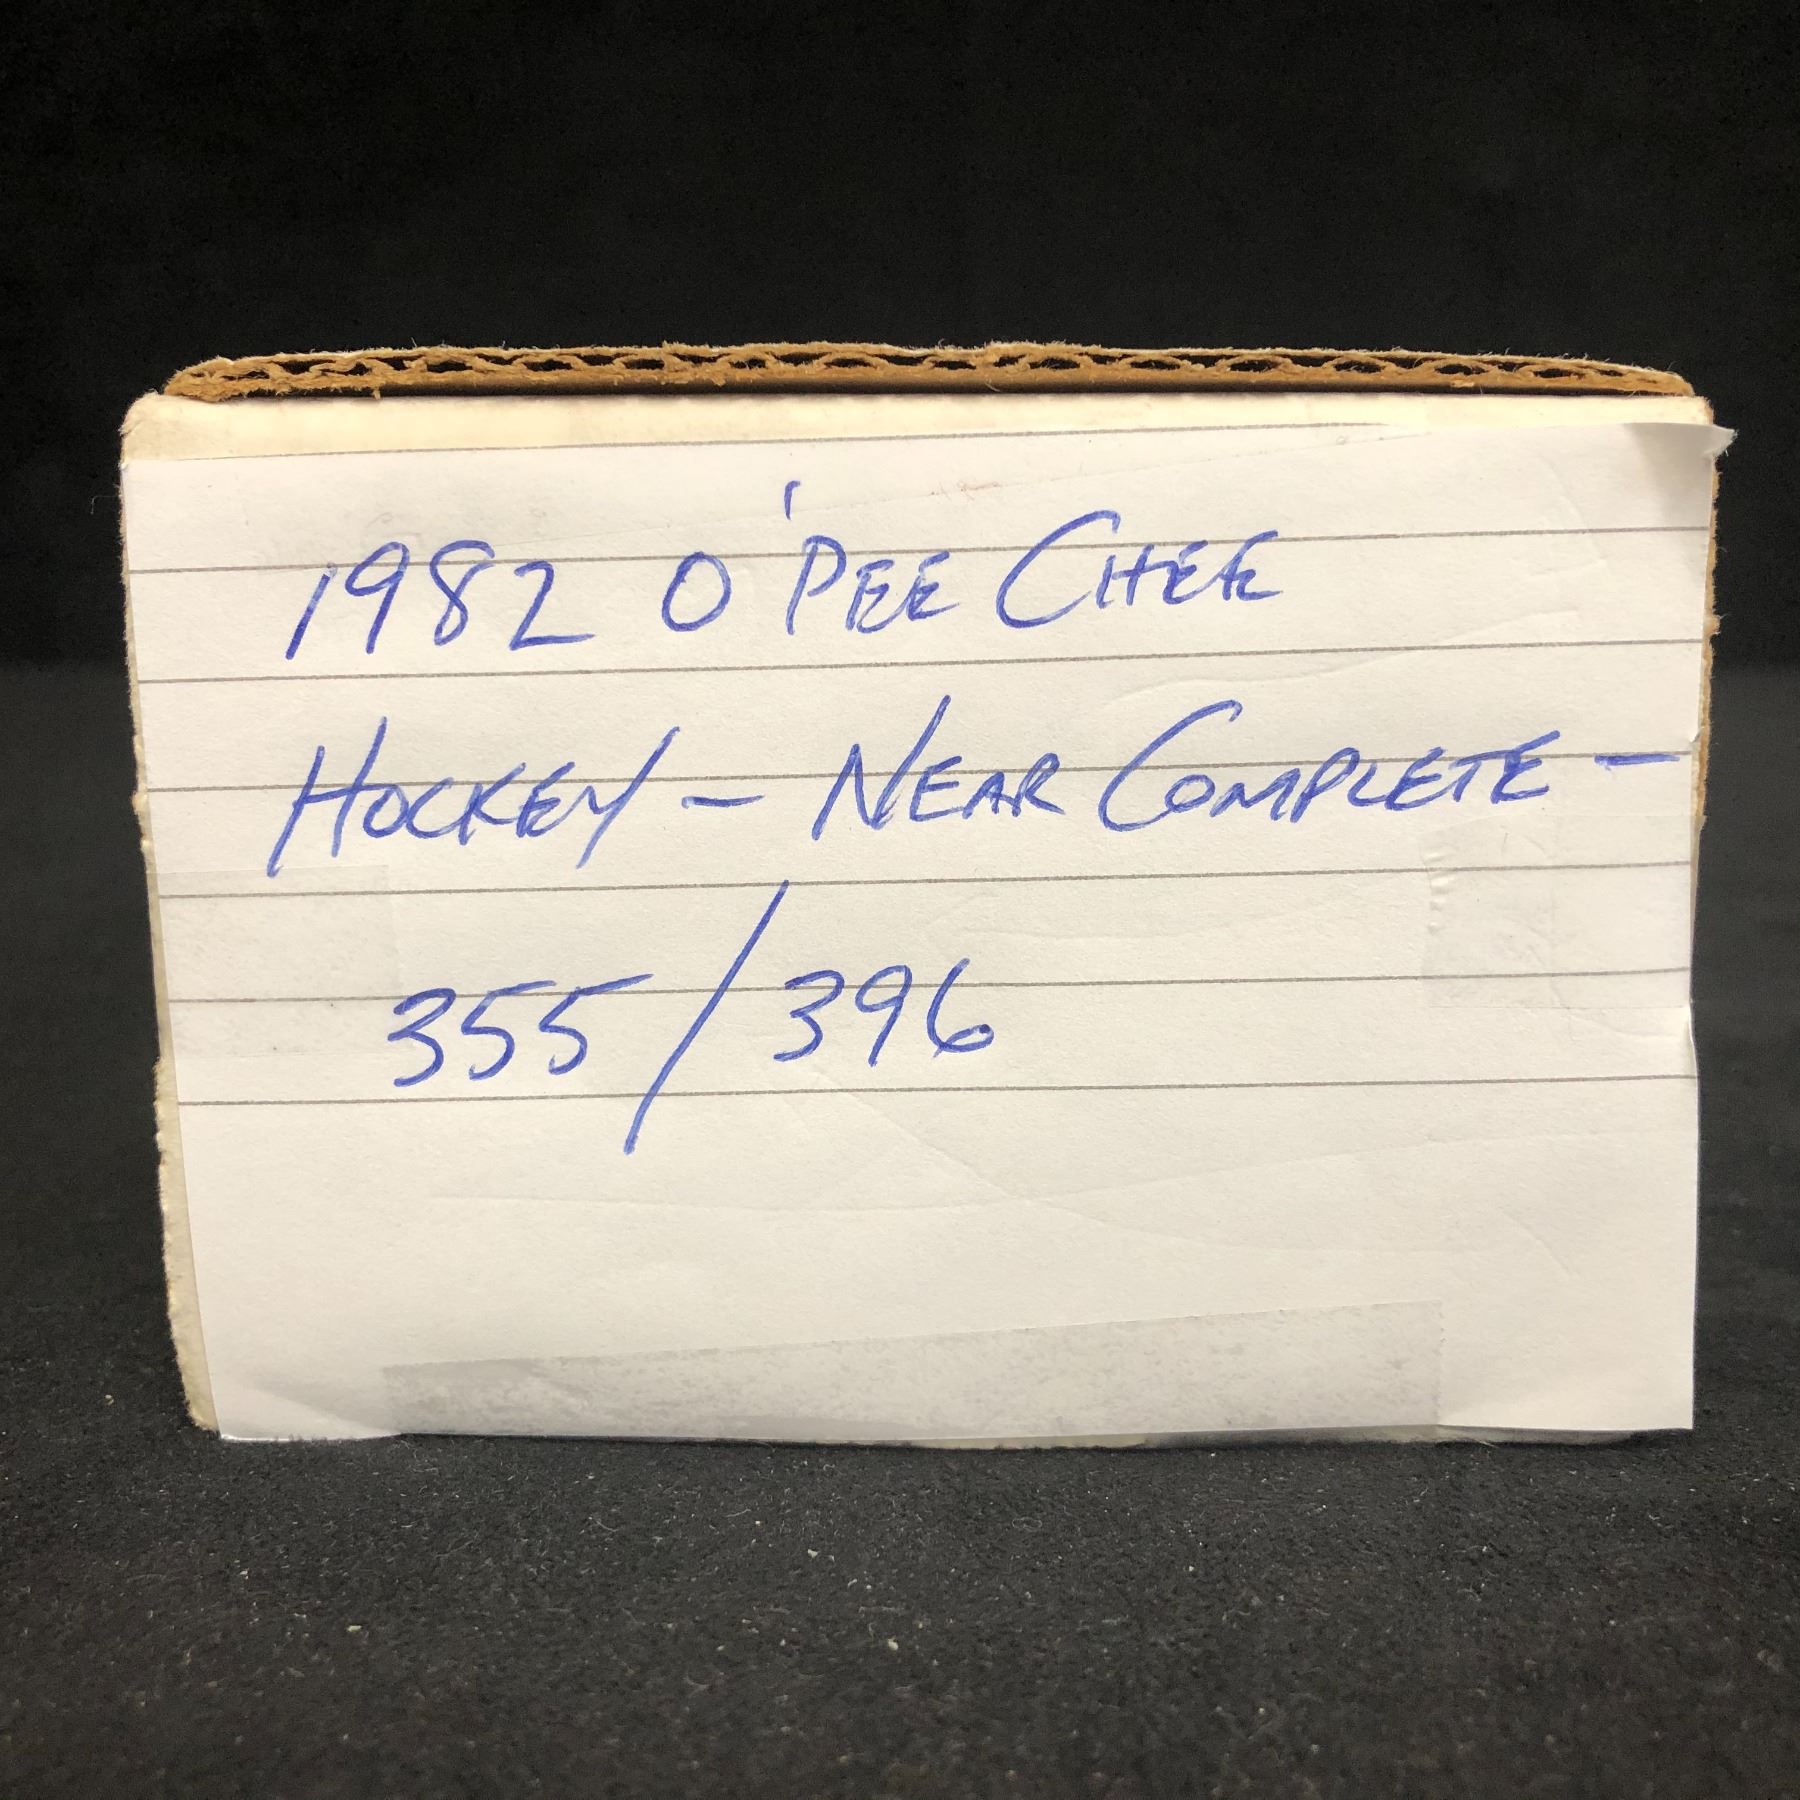 1982 O'PEE CHEE
HOCKEY - NEAR COMPLETE -
355/396